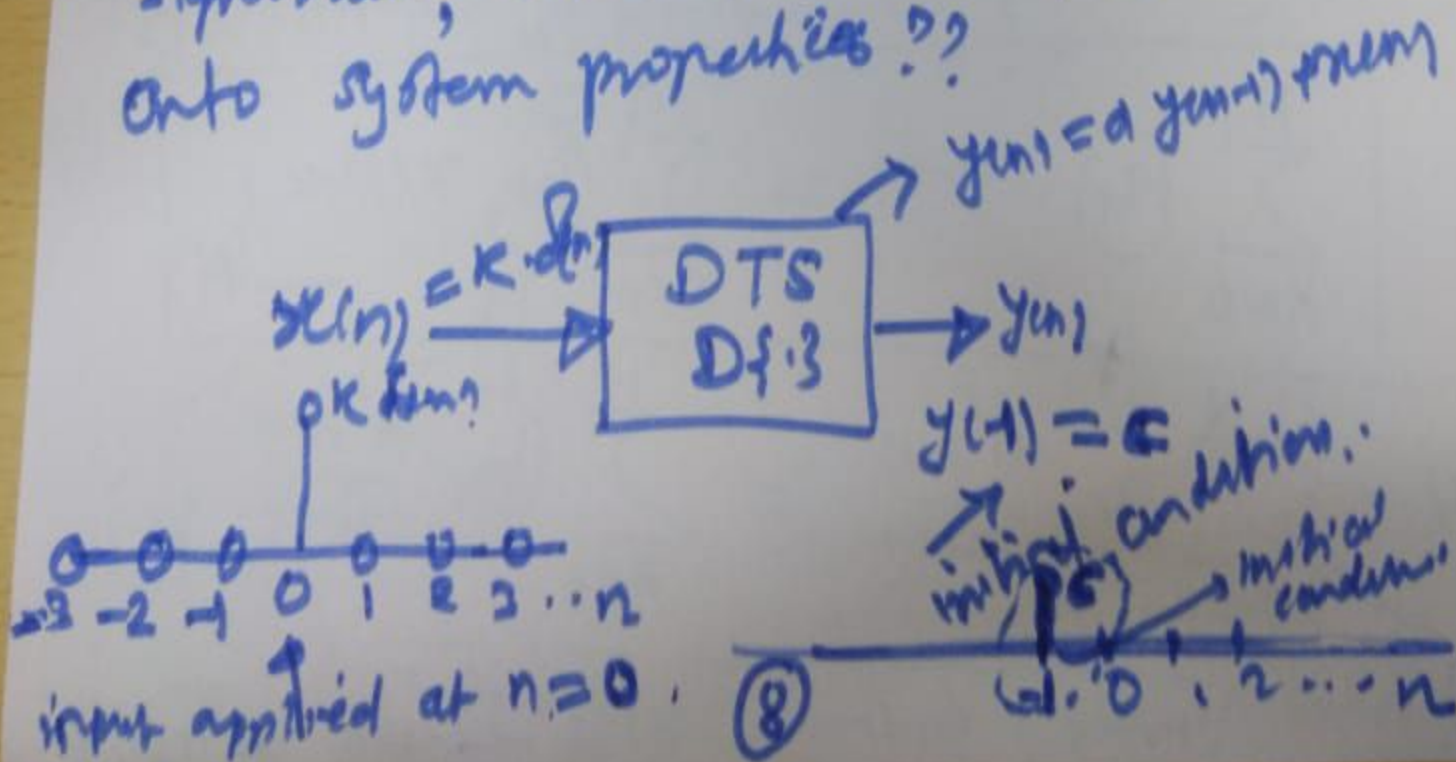 onto system properties??
y(n) = a y(n-1) + x(n)
x(n) = K.δ(n)
DTS
D{.}
y(n)
K δ(n)
y(-1) = c
initial condition.
c
initial
-3 -2 -1 0 1 2 3 .. n
-1. 0 1 2 ... n
input applied at n=0.
8